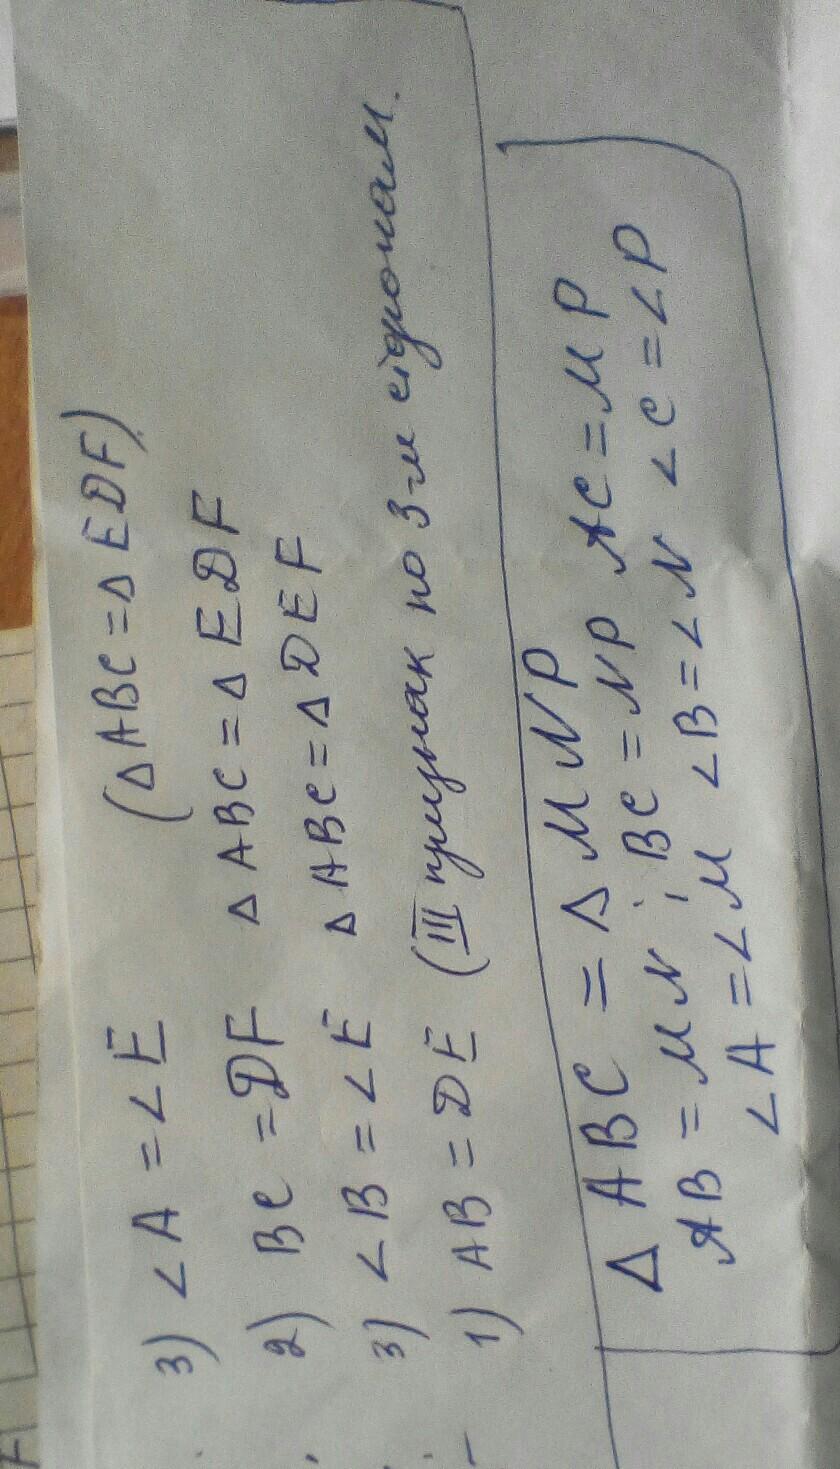 3) ∠A = ∠E (△ABC = △EDF)
2) BC = DF △ABC = △EDF
3) ∠B = ∠E △ABC = △DEF
1) AB = DE (III признак по 3-м сторонам.
△ABC = △MNP
AB = MN, BC = NP AC = MP
∠A = ∠M ∠B = ∠N ∠C = ∠P